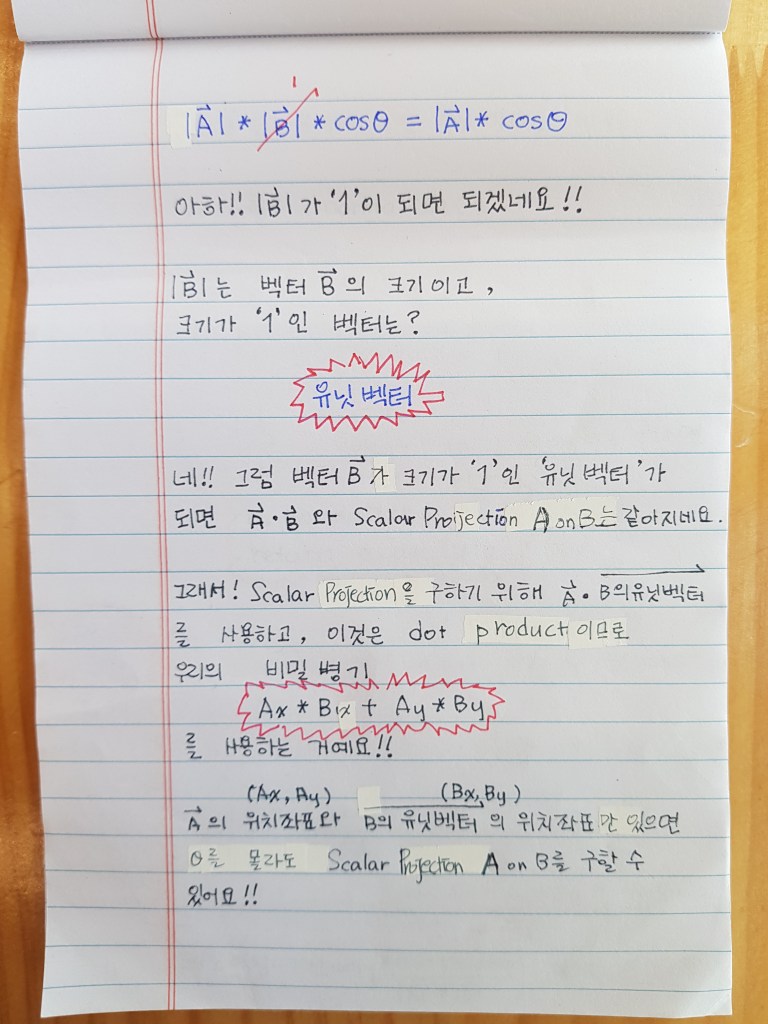 1
|A⃗| * |B⃗| * cosθ = |A⃗| * cosθ
아하!! |B⃗| 가 '1'이 되면 되겠네요!!
|B⃗| 는 벡터 B⃗ 의 크기이고,
크기가 '1'인 벡터는?
유닛 벡터
네!! 그럼 벡터 B⃗ 가 크기가 '1'인 '유닛 벡터'가
되면 A⃗·B⃗ 와 Scalar Projection A on B는 같아지네요.
그래서! Scalar Projection을 구하기 위해 A⃗ · B의 유닛벡터
를 사용하고, 이것은 dot product 이므로
우리의 비밀 병기
Ax * Bx + Ay * By
를 사용하는 거예요!!
(Ax, Ay) (Bx, By)
A⃗ 의 위치좌표와 B의 유닛벡터 의 위치좌표만 있으면
θ를 몰라도 Scalar Projection A on B를 구할 수
있어요!!